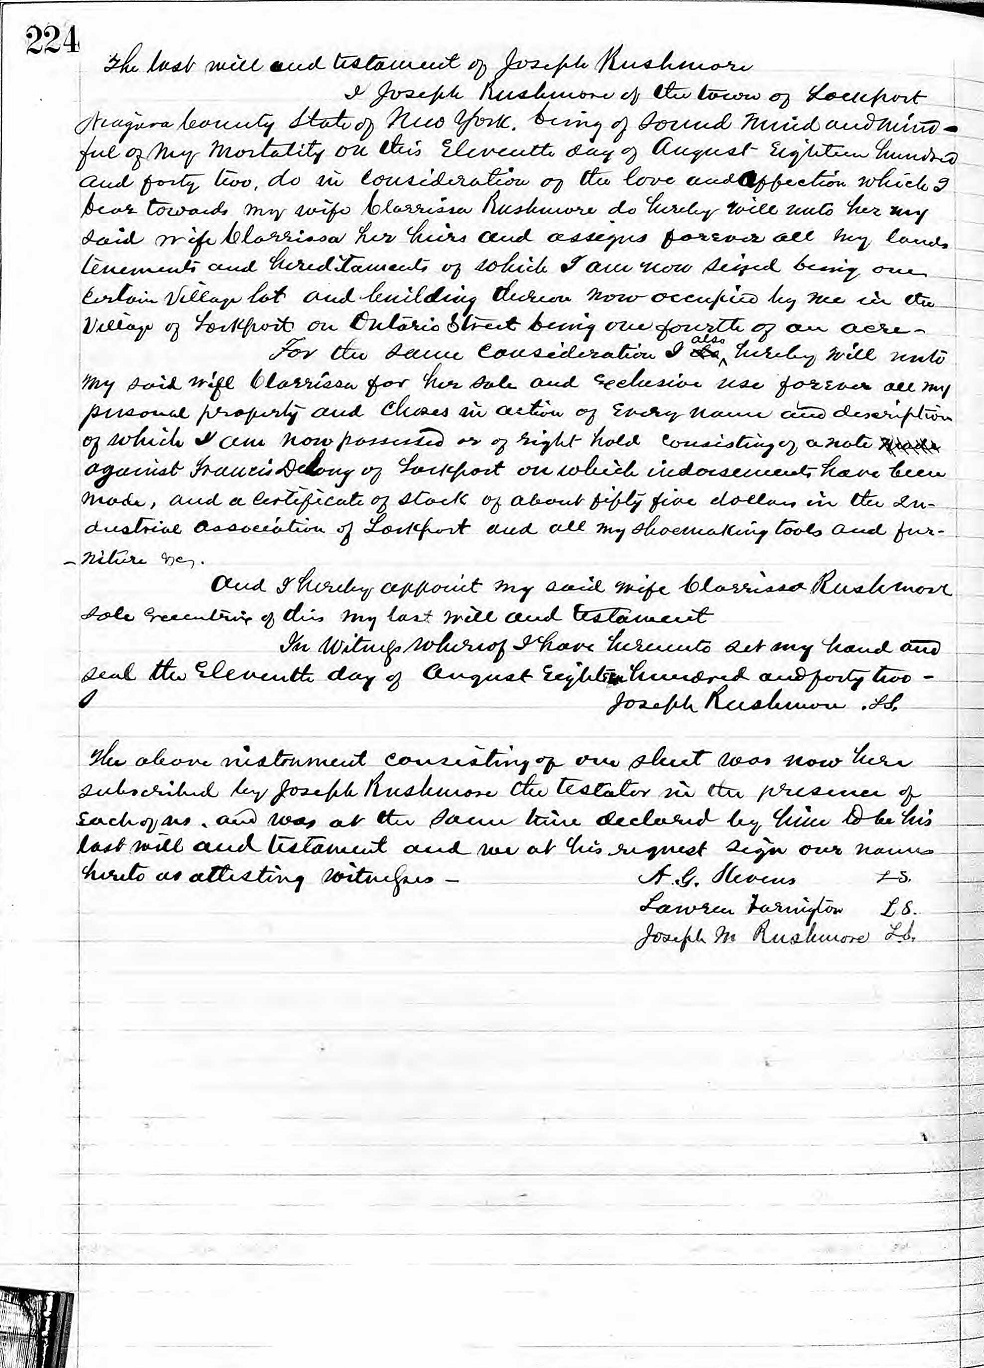 224
The last will and testament of Joseph Rushmore
I Joseph Rushmore of the town of Lockport
Niagara County State of New York, being of sound mind and mind-
ful of my mortality on this Eleventh day of August Eighteen hundred
and forty two, do in consideration of the love and affection which I
bear towards my wife Clarrissa Rushmore do hereby will unto her my
said wife Clarrissa her heirs and assigns forever all my lands
tenements and hereditaments of which I am now seized being one
certain Village lot and building thereon now occupied by me in the
Village of Lockport on Ontario Street being one fourth of an acre-
For the same consideration I do also hereby will unto
my said wife Clarrissa for her sole and exclusive use forever all my
personal property and choses in action of every name and description
of which I am now possessed or of right hold consisting of a note
against Francis Delong of Lockport on which indorsements have been
made, and a certificate of stock of about fifty five dollars in the In-
dustrial Association of Lockport and all my shoemaking tools and fur-
-niture &c.
And I hereby appoint my said wife Clarrissa Rushmore
sole executrix of this my last will and testament
In Witness whereof I have hereunto set my hand and
seal the Eleventh day of August Eighteen hundred and forty two -
Joseph Rushmore . LS.
The above instrument consisting of one sheet was now here
subscribed by Joseph Rushmore the testator in the presence of
Each of us. and was at the same time declared by him to be his
last will and testament and we at his request sign our names
hereto as attesting witnesses -
A. G. Stevens L S.
Lawren Farington L S.
Joseph M Rushmore L.S.